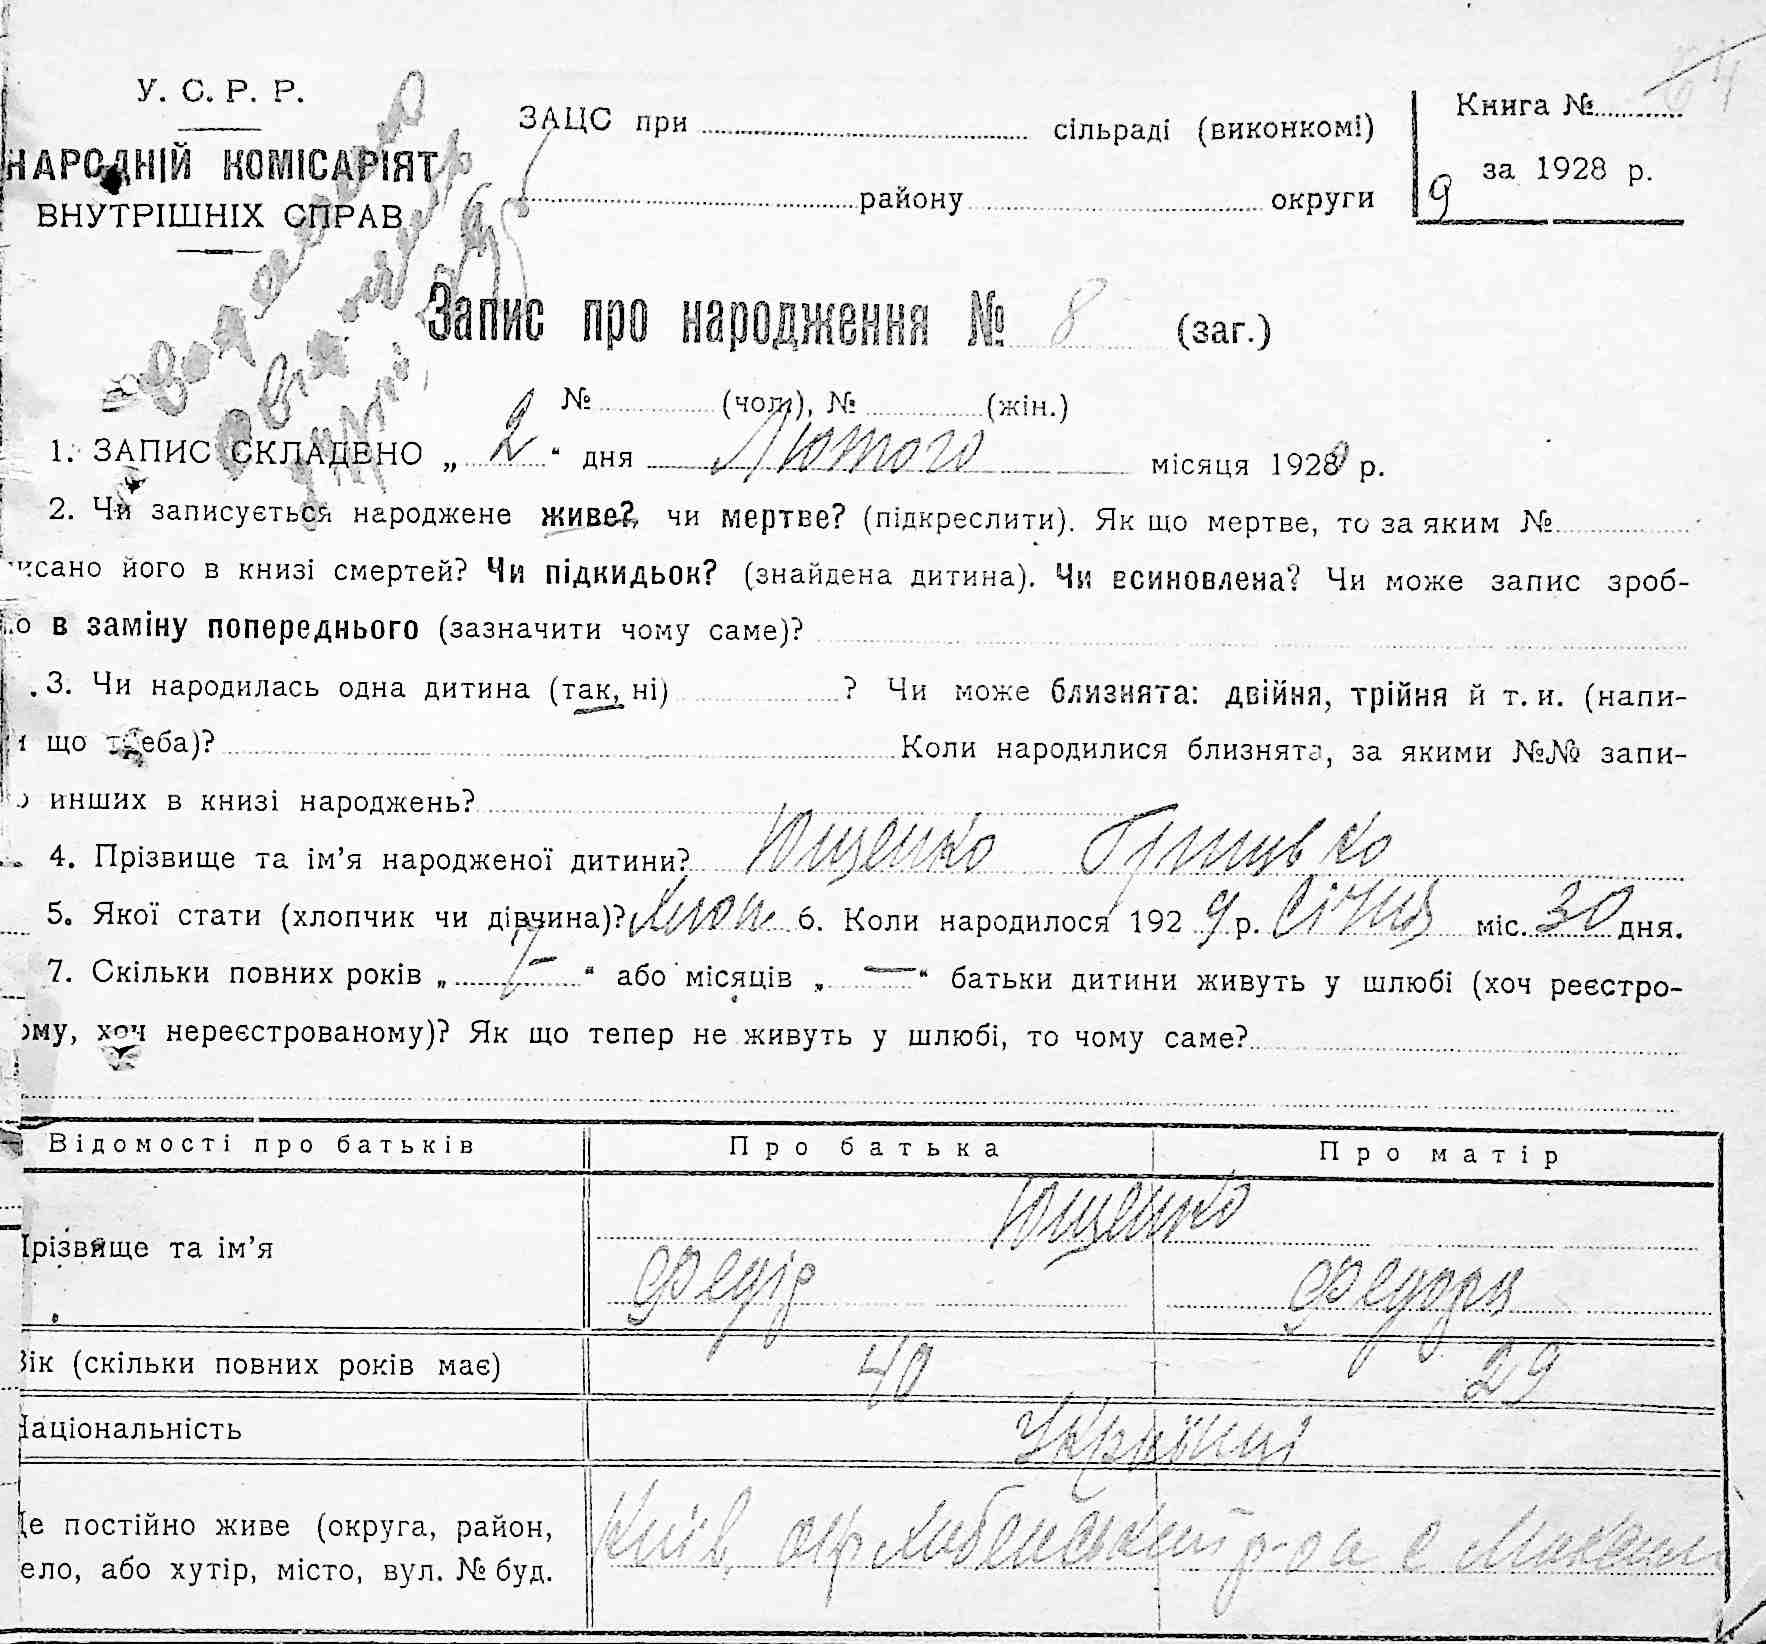 У. С. Р. Р.
НАРОДНІЙ КОМІСАРІЯТ
ВНУТРІШНІХ СПРАВ
ЗАЦС при сільраді (виконкомі)
району округи
Книга №
за 1928 р.
9
Запис про народження № 8 (заг.)
№ (чол.), № (жін.)
1. ЗАПИС СКЛАДЕНО „ 2 “ дня Лютого місяця 1929 р.
2. Чи записується народжене живе?, чи мертве? (підкреслити). Як що мертве, то за яким №
исано його в книзі смертей? Чи підкидьок? (знайдена дитина). Чи всиновлена? Чи може запис зроб-
о в заміну попереднього (зазначити чому саме)?
3. Чи народилась одна дитина (так, ні) ? Чи може близнята: двійня, трійня й т. и. (напи-
и що треба)? Коли народилися близнята, за якими №№ запи-
о инших в книзі народжень?
4. Прізвище та ім’я народженої дитини? Ющенко Грицько
5. Якої стати (хлопчик чи дівчина)? Хлоп 6. Коли народилося 192 9 р. Січня міс. 30 дня.
7. Скільки повних років „ 7- “ або місяців „ — “ батьки дитини живуть у шлюбі (хоч реєстро-
ому, хоч нереєстрованому)? Як що тепер не живуть у шлюбі, то чому саме?
Відомості про батьків Про батька Про матір
Прізвище та ім’я Ющенко
Федір Федора
Вік (скільки повних років має) 40 29
Національність Українці
Де постійно живе (округа, район,
село, або хутір, місто, вул. № буд.
Київ. окр Хабенський р-н с